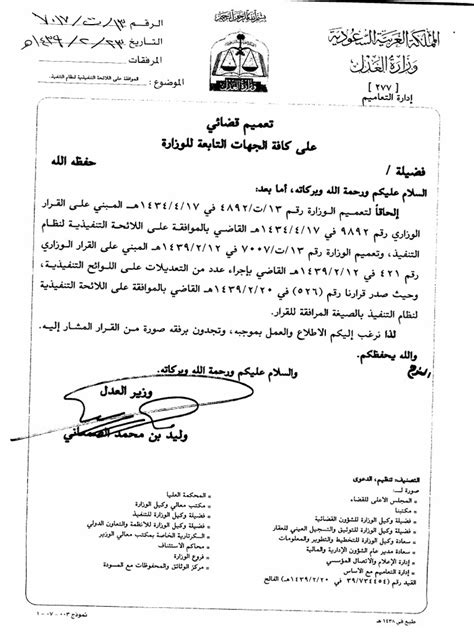 بسم الله الرحمن الرحيم
المملكة العربية السعودية
وزارة العدل
[ ٢٧٧ ]
إدارة التعاميم
الرقم ١٣/ت/٧٠١٧
التاريخ ١٤٣٩/٢/٢٣هـ
المرفقات
الموضوع: الموافقة على اللائحة التنفيذية لنظام التنفيذ.
تعميم قضائي
على كافة الجهات التابعة للوزارة
فضيلة / حفظه الله
السلام عليكم ورحمة الله وبركاته، أما بعد:
إلحاقاً لتعميم الوزارة رقم ١٣/ت/٤٨٩٢ في ١٤٣٤/٤/١٧هـ المبني على القرار
الوزاري رقم ٩٨٩٢ في ١٤٣٤/٤/١٧هـ القاضي بالموافقة على اللائحة التنفيذية لنظام
التنفيذ، وتعميم الوزارة رقم ١٣/ت/٧٠٠٧ في ١٤٣٩/٢/١٢هـ المبني على القرار الوزاري
رقم ٤٢١ في ١٤٣٩/٢/١٢هـ القاضي بإجراء عدد من التعديلات على اللوائح التنفيذية،
وحيث صدر قرارنا رقم (٥٢٦) في ١٤٣٩/٢/٢٠هـ القاضي بالموافقة على اللائحة التنفيذية
لنظام التنفيذ بالصيغة المرافقة للقرار.
لذا نرغب إليكم الاطلاع والعمل بموجبه، وتجدون برفقه صورة من القرار المشار إليه.
والله يحفظكم.
والسلام عليكم ورحمة الله وبركاته.
وزير العدل
وليد بن محمد الصمعاني
التصنيف: تنظيم، الدعوى
صورة لـ:
المجلس الأعلى للقضاء
مكتبنا
فضيلة وكيل الوزارة للشؤون القضائية
فضيلة وكيل الوزارة للتوثيق والتسجيل العيني للعقار
سعادة وكيل الوزارة للتخطيط والتطوير والمعلومات
سعادة مدير عام الشؤون الإدارية والمالية
إدارة الإعلام والاتصال المؤسسي
إدارة التعاميم مع الأساس
القيد رقم (٣٩/٧٣٤٤٥٤ في ١٤٣٩/٢/٢٠هـ) الفالح
المحكمة العليا
مكتب معالي وكيل الوزارة
فضيلة وكيل الوزارة للتنفيذ
فضيلة وكيل الوزارة للأنظمة والتعاون الدولي
السكرتارية الخاصة بمكتب معالي الوزير
محاكم الاستئناف
فروع الوزارة
مركز الوثائق والمحفوظات مع المسودة
طبع في ١٤٣٨ هـ
نموذج ٠٠٣-٠٧-١